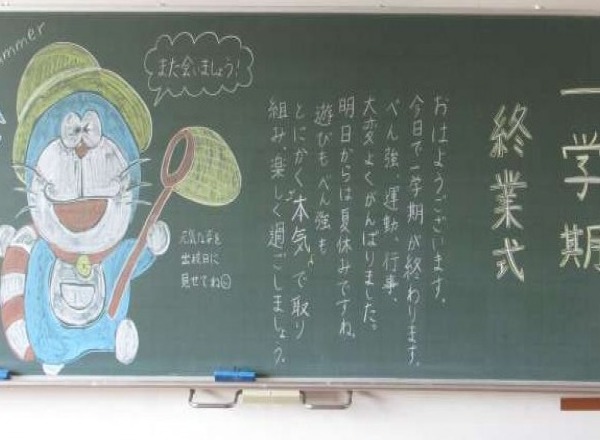 一学期
終業式
おはようございます。
今日で一学期が終わります。
べん強、運動、行事、
大変よくがんばりました。
明日からは夏休みですね。
遊びもべん強も
とにかく“本気”で取り
組み、楽しく過ごしましょう。
また会いましょう！
元気な姿を
出校日に
見せてね
ummer